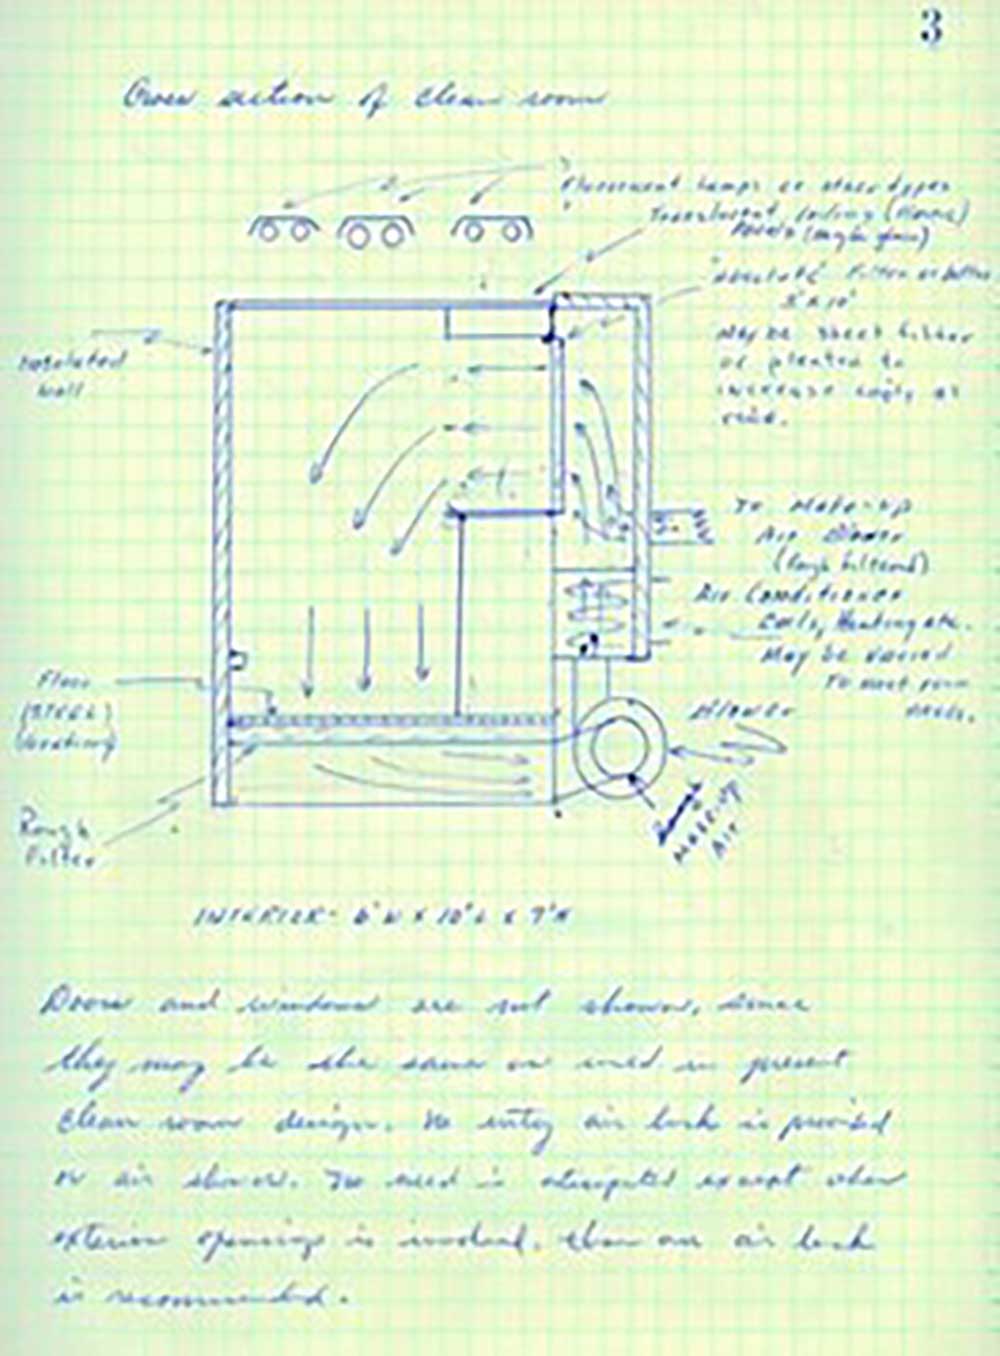 3
Cross section of clean room
Fluorescent lamps or other types
Translucent ceiling
Panels
"Absolute" Filter or better
5' x 10'
May be sheet
or pleated to
increase as
Insulated
wall
To Make-up
Air Blower
(Rough filtered)
Air Conditioner
Coils, Heating etc.
May be varied
To meet room
needs.
Floor
(STEEL)
(Grating)
Blower
Make-up
Air
Rough
Filter
INTERIOR - 6'W x 10'L x 7'H
Doors and windows are not shown, since
they may be the same as used in present
clean room design. No entry air lock is provided
or air shower. No need is anticipated except when
exterior openings is involved, then an air lock
is recommended.